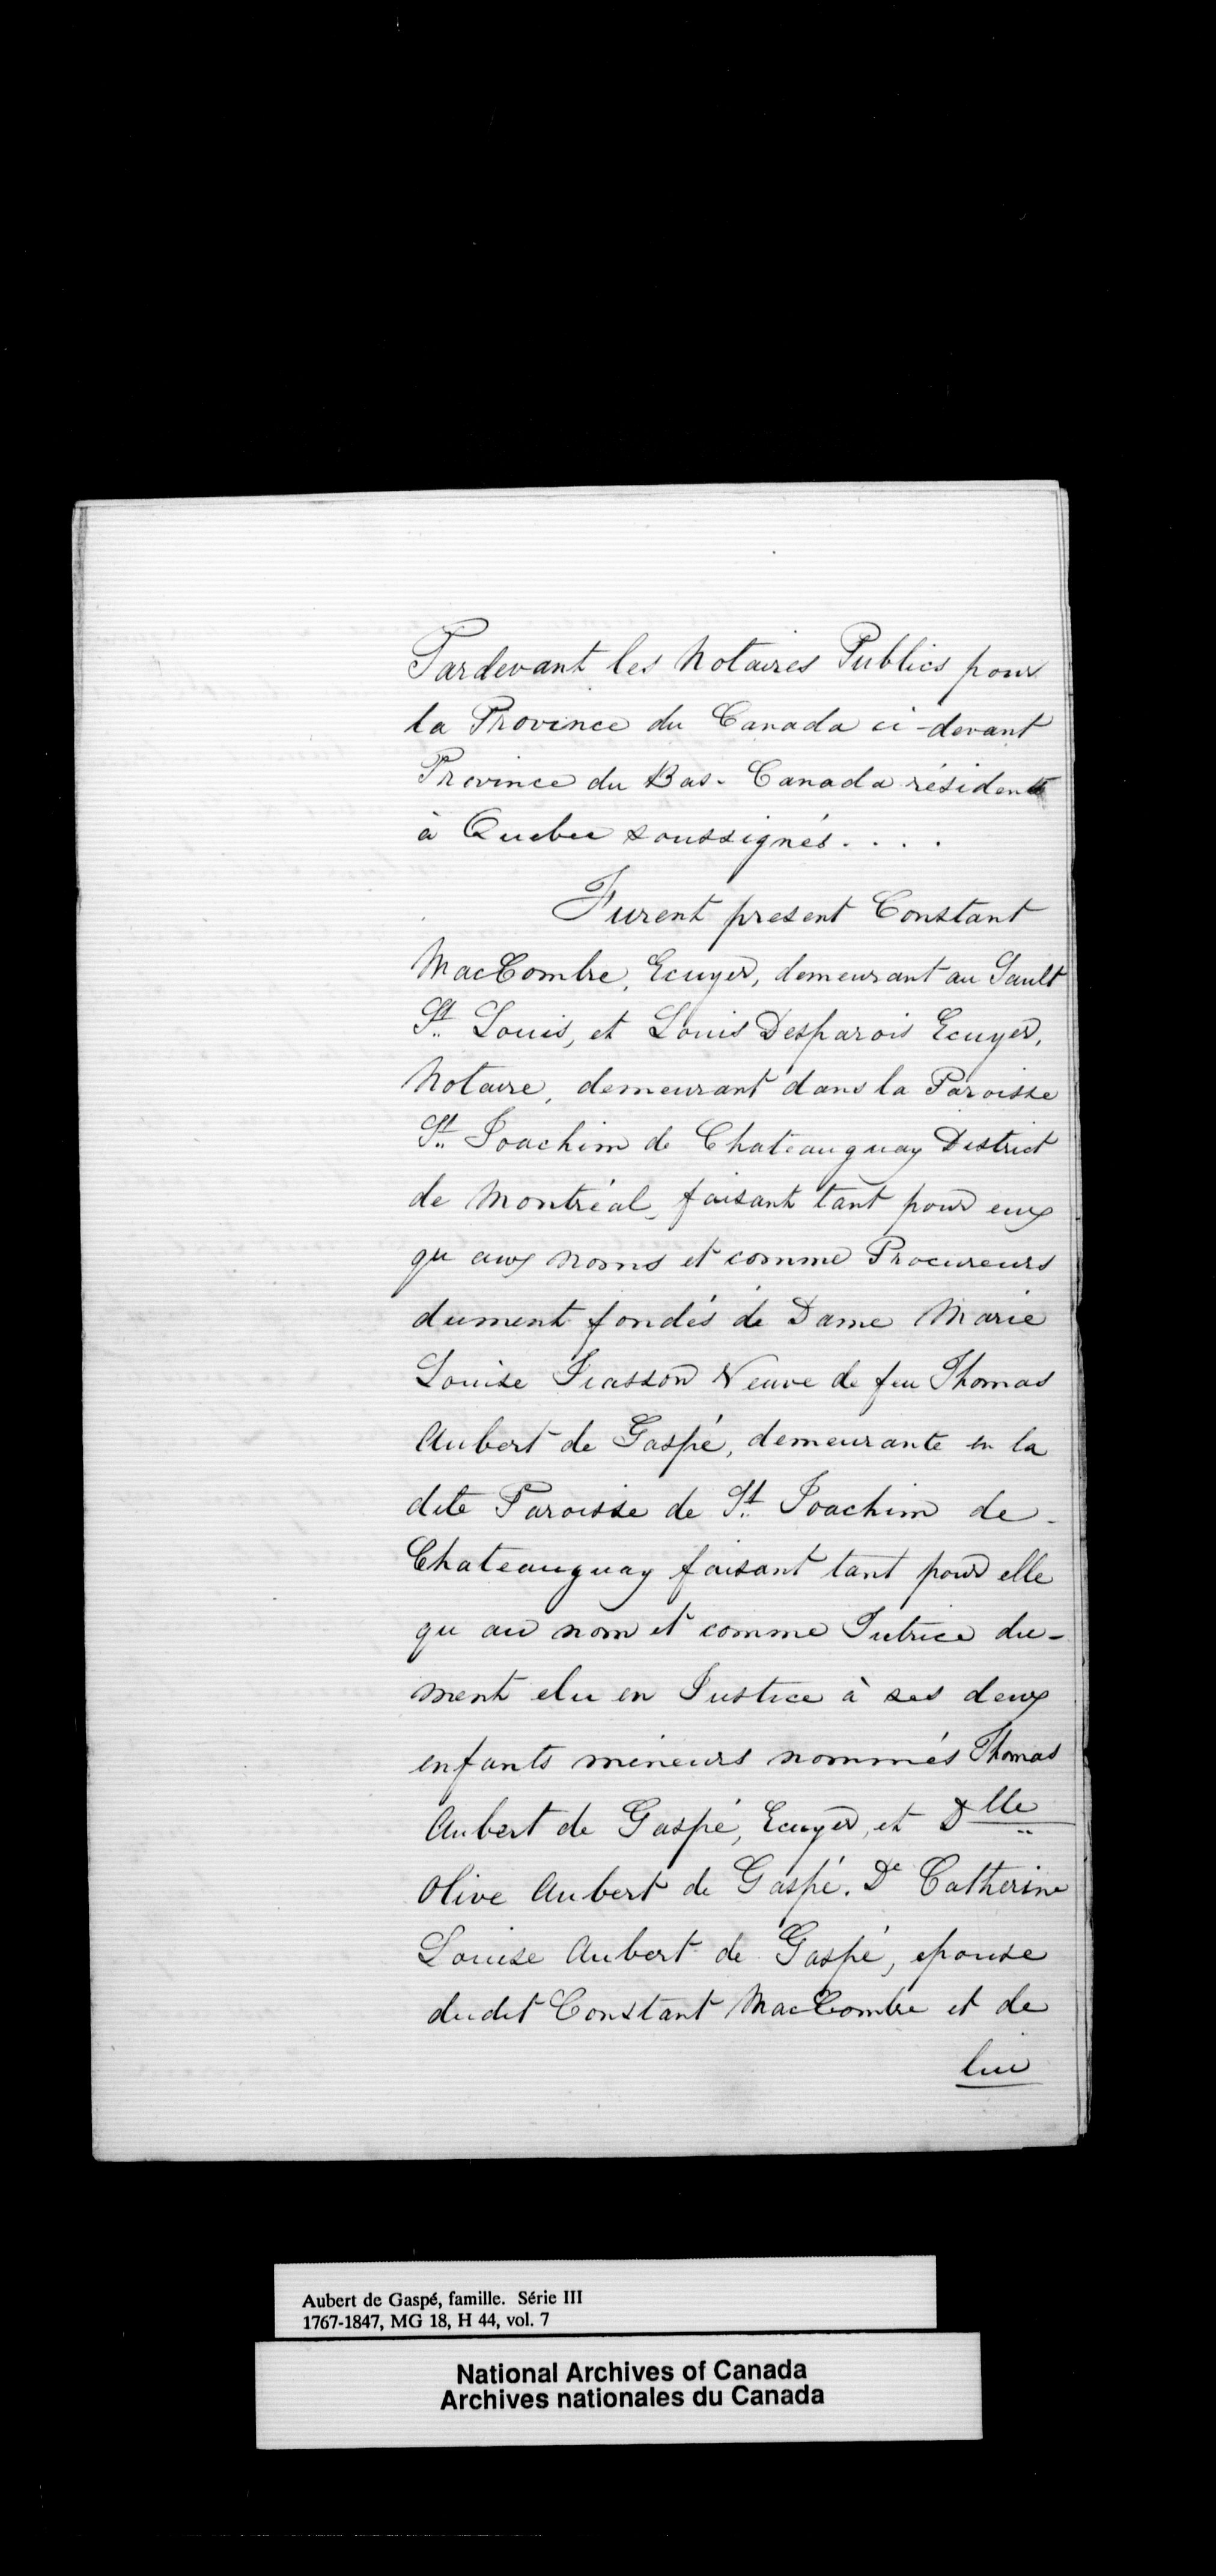 Pardevant les Notaires Publics pour
la Province du Canada ci-devant
Province du Bas-Canada résidents
à Quebec soussignés. . . .
Furent present Constant
MacCombre, Ecuyer, demeurant au Sault
St. Louis, et Louis Desparois Ecuyer,
Notaire, demeurant dans la Paroisse
St. Joachim de Chateauguay District
de Montréal, faisant tant pour eux
qu aux noms et comme Procureurs
dument fondés de Dame Marie
Louise Veuve de feu Thomas
Aubert de Gaspé, demeurante en la
dite Paroisse de St. Joachim de
Chateauguay faisant tant pour elle
qu au nom et comme Tutrice du-
ment elu en Justice à ses deux
enfants mineurs nommés Thomas
Aubert de Gaspé, Ecuyer, et Dlle
Olive Aubert de Gaspé. De Catherine
Louise Aubert de Gaspé, epouse
dudit Constant MacCombre et de
lui
Aubert de Gaspé, famille. Série III
1767-1847, MG 18, H 44, vol. 7
National Archives of Canada
Archives nationales du Canada